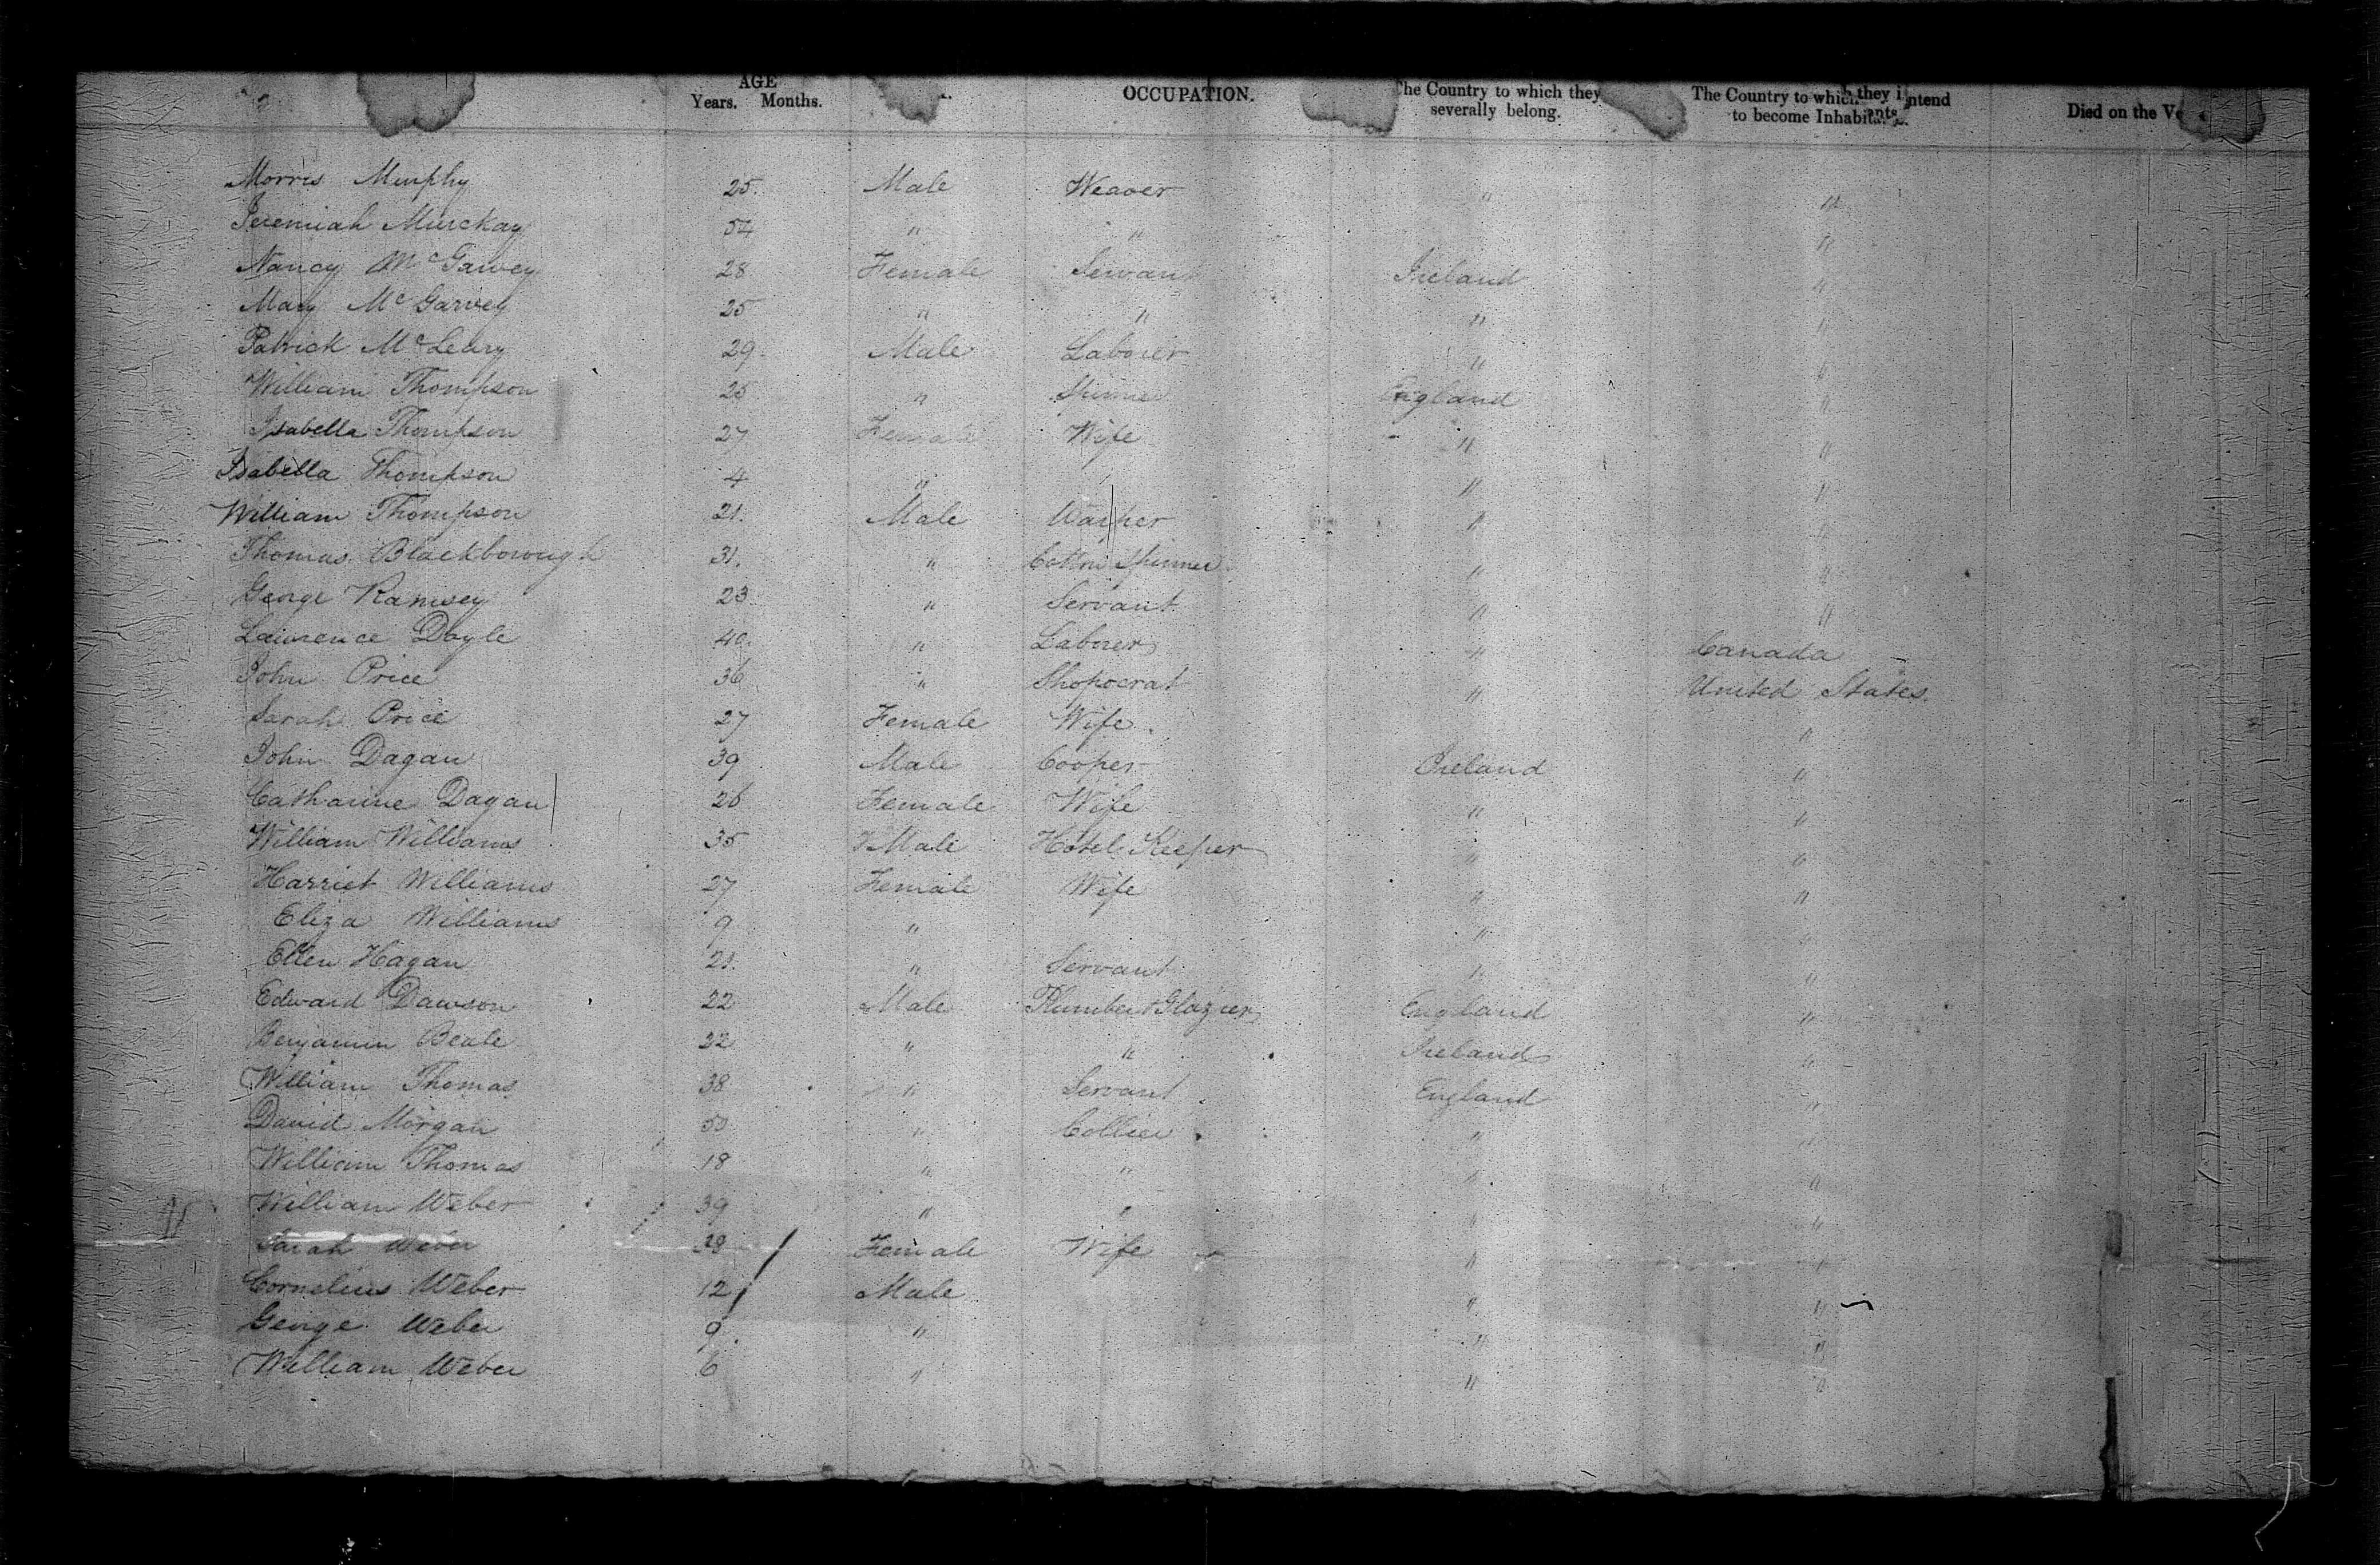 AGE
Years. Months.
OCCUPATION.
The Country to which they severally belong.
The Country to which they intend to become Inhabitants.
Died on the
Morris Murphy 25. Male Weaver " "
Jeremiah Murckay 54 " " "
Nancy McGarvey 28 Female Servant Ireland "
Mary McGarvey 25 " " " "
Patrick McLeary 29. Male Laborer " "
William Thompson 25 " Spinner England "
Isabella Thompson 27 Female Wife " "
Isabella Thompson 4 " " "
William Thompson 21. Male Warper " "
Thomas Blackborough 31. " Cotton Spinner " "
George Ramsey 23 " Servant " "
Lawrence Doyle 40. " Laborer " Canada
John Price 36 " Shopocrat " United States
Sarah Price 27 Female Wife. "
John Dagan 39 Male Cooper Ireland "
Catharine Dagan 26 Female Wife " "
William Williams 35 Male Hotel Keeper " "
Harriet Williams 27 Female Wife " "
Eliza Williams 9 " " "
Ellen Hagan 21. " Servant " "
Edward Dawson 22 Male Plumber & Glazier England "
Benjamin Beale 22 " " Ireland "
William Thomas 38 " Servant England "
David Morgan 50 " Collier " "
William Thomas 18 " " " "
William Weber 39 " " " "
Sarah Weber 38 Female Wife " "
Cornelius Weber 12 Male " "
George Weber 9. " " "
William Weber 6 " " "